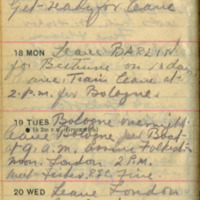 Get ready for leave
18 MON Leave BARLIN
for Bethune on 10 day
Train leave at
2. p.m. for Bologne.
19 TUES Bologne overnight
leave Bologne per Boat
at 9. a.m. arrive Folkest
noon. London 2 P.M.
20 WED Leave London